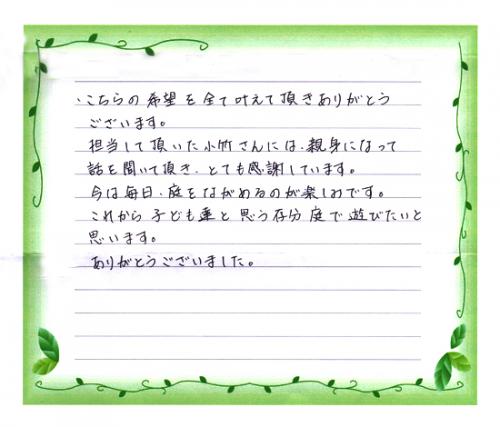 ・こちらの希望を全て叶えて頂きありがとう
ございます。
担当して頂いた小竹さんには、親身になって
話を聞いて頂き、とても感謝しています。
今は毎日、庭をながめるのが楽しみです。
これから子ども達と思う存分庭で遊びたいと
思います。
ありがとうございました。